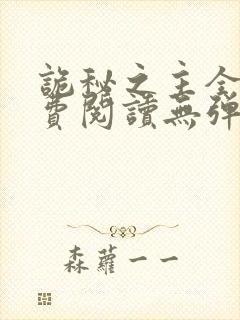 詭秘之主全
費閱讀無彈
森蘿一一